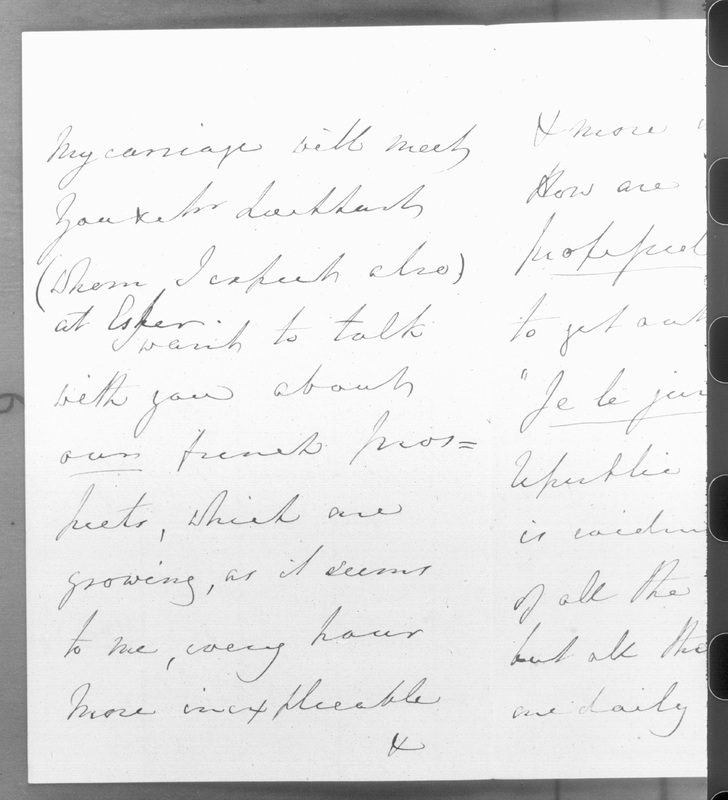 My carriage will meet
you & Mr Lockhart
(whom I expect also)
at Esher.
I want to talk
with you about
our french pros=
pects, which are
growing, as it seems
to me, every hour
more inexplicable
&
& more
How are
professed
to get out
"Je le jur
Republic
is
of all the
but all the
are daily